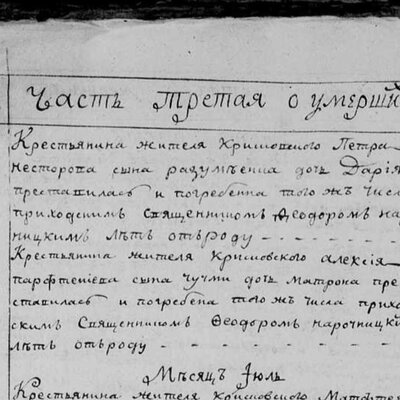 Часть третая о умерши
Крестьянина жителя Крисовского Петра
несторова сына разумѣенка дочь Дарія
преставилась и погребенна того жъ числа
приходскимъ Священникомъ Феодоромъ нар
ницкимъ лѣтъ отъроду
Крестьянина жителя Крисовского алексія
парфенієва сына чучми дочь матрона пре
ставилась и погребена того жъ числа прихо
скимъ Священникомъ Феодоромъ нарочницки
лѣтъ отъроду
Мѣсяцъ Іюль
Крестьянина жителя Крисовского